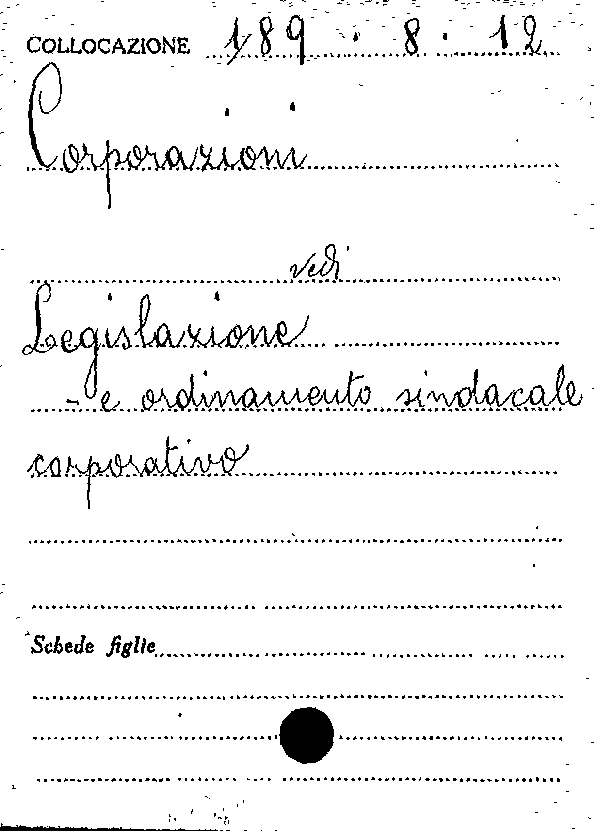 COLLOCAZIONE 189.8.12
Corporazioni
vedi
Legislazione
- e ordinamento sindacale
corporativo
Schede figlie